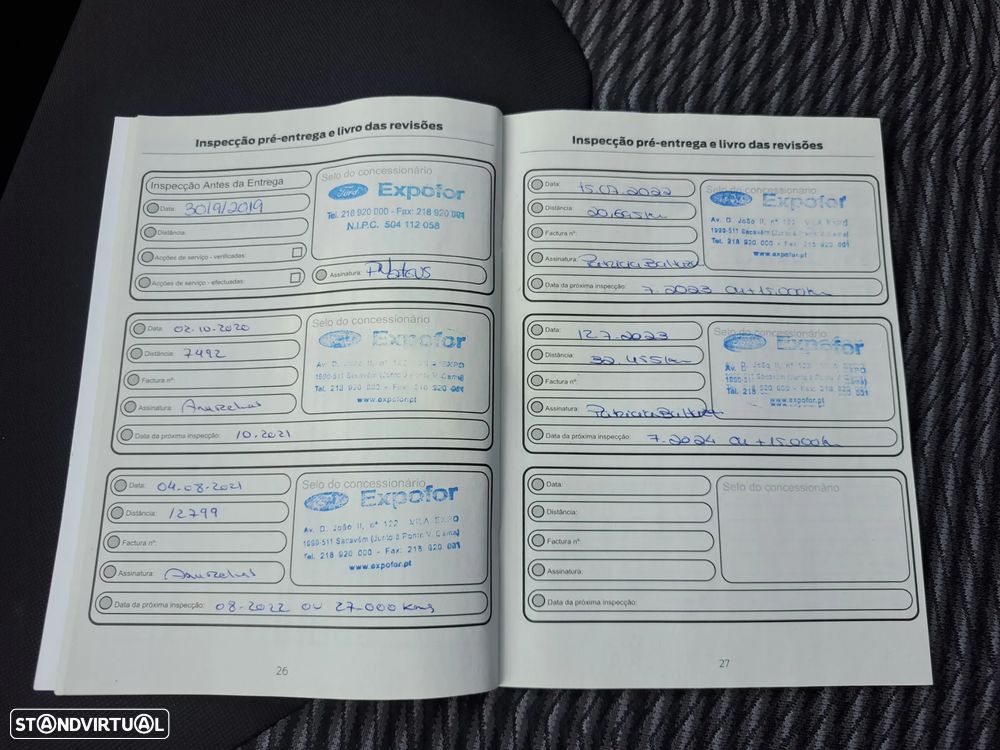 Inspecção pré-entrega e livro das revisões
Inspecção Antes da Entrega
Data: 30/9/2019
Distância:
Acções de serviço - verificadas:
Acções de serviço - efectuadas:
Selo do concessionário
Ford Expofor
Tel. 218 920 000 - Fax: 218 920 001
N.I.P.C. 504 112 058
Assinatura:
Data: 02-10-2020
Distância: 7492
Factura nº:
Assinatura:
Data da próxima inspecção: 10.2021
Selo do concessionário
Ford Expofor
Av. D. João II, nº 122 - VILA EXPO
1990-511 Sacavém (Junto à Ponte V. Gama)
Tel. 218 920 000 - Fax: 218 920 001
www.expofor.pt
Data: 04-08-2021
Distância: 12799
Factura nº:
Assinatura:
Data da próxima inspecção: 08-2022 ou 27-000 kms
Selo do concessionário
Ford Expofor
Av. D. João II, nº 122 VILA EXPO
1990-511 Sacavém (Junto à Ponte V. Gama)
Tel. 218 920 000 - Fax: 218 920 001
www.expofor.pt
26
Inspecção pré-entrega e livro das revisões
Data: 15.07.2022
Distância: 20.695 km
Factura nº:
Assinatura: Patricia
Data da próxima inspecção: 7.2023 ou +15.000km
Selo do concessionário
Ford Expofor
Av. D. João II, nº 122 VILA EXPO
1990-511 Sacavém (Junto à Ponte V. Gama)
Tel. 218 920 000 - Fax: 218 920 001
www.expofor.pt
Data: 12.7.2023
Distância: 32.455 km
Factura nº:
Assinatura: Patricia
Data da próxima inspecção: 7.2024 ou +15.000km
Selo do concessionário
Ford Expofor
Av. D. João II, nº 122 VILA EXPO
1990-511 Sacavém (Junto à Ponte V. Gama)
Tel. 218 920 000 - Fax: 218 920 001
www.expofor.pt
Data:
Distância:
Factura nº:
Assinatura:
Data da próxima inspecção:
Selo do concessionário
27
STANDVIRTUAL